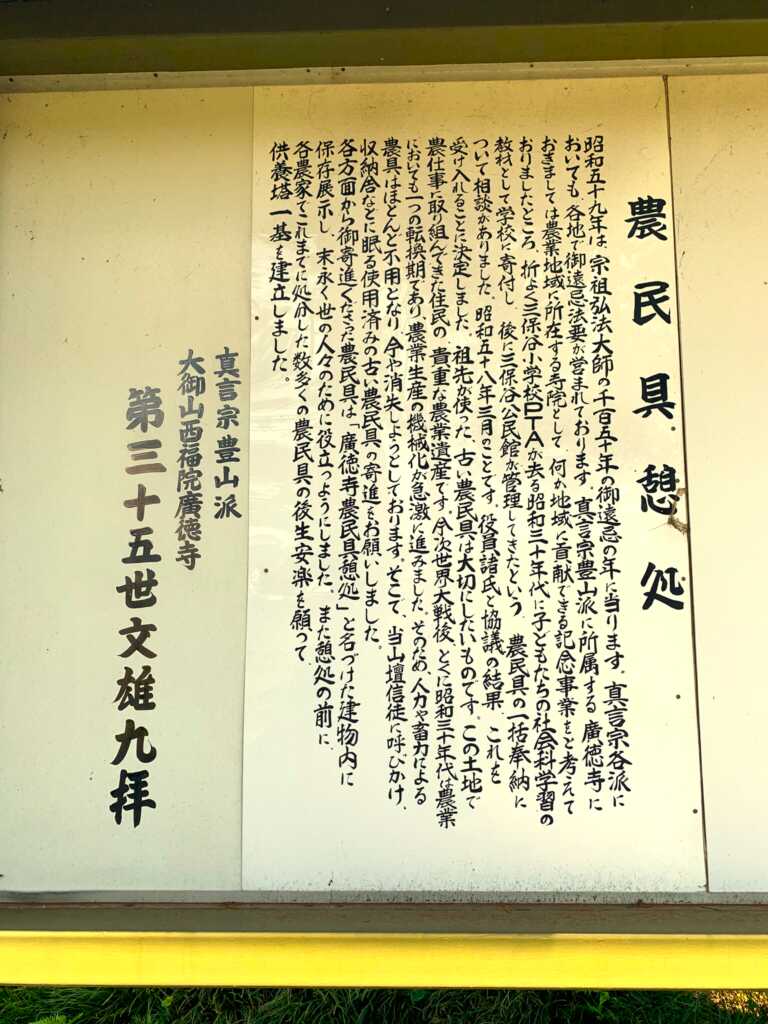 農民具憩処
昭和五十九年は、宗祖弘法大師の千百五十年の御遠忌の年に当ります。真言宗各派に
おいても、各地で御遠忌法要が営まれております。真言宗豊山派に所属する廣徳寺に
おきましては農業地域に所在する寺院として、何か地域に貢献できる記念事業をと考えて
おりましたところ、折よく三保谷小学校PTAが去る昭和三十年代に子どもたちの社会科学習の
教材として学校に寄付し、後に三保谷公民館が管理してきたという、農民具の一括奉納に
ついて相談がありました。昭和五十八年三月のことです。役員諸氏と協議の結果、これを
受け入れることに決定しました。祖先が使った、古い農民具は大切にしたいものです。この土地で
農仕事に取り組んできた住民の、貴重な農業遺産です。今次世界大戦後、とくに昭和三十年代は農業
においても一つの転換期であり、農業生産の機械化が急激に進みました。そのため、人力や畜力による
農具はほとんど不用となり、今や消失しようとしております。そこで、当山壇信徒に呼びかけ、
収納舎などに眠る使用済みの古い農民具の寄進をお願いしました。
各方面から御寄進くださった農民具は「廣徳寺農民具憩処」と名づけた建物内に
保存展示し、末永く世の人々のために役立つようにしました。また憩処の前に、
各農家でこれまでに処分した数多くの農民具の後生安楽を願って
供養塔一基を建立しました。
真言宗豊山派
大御山西福院廣徳寺
第三十五世文雄九拝